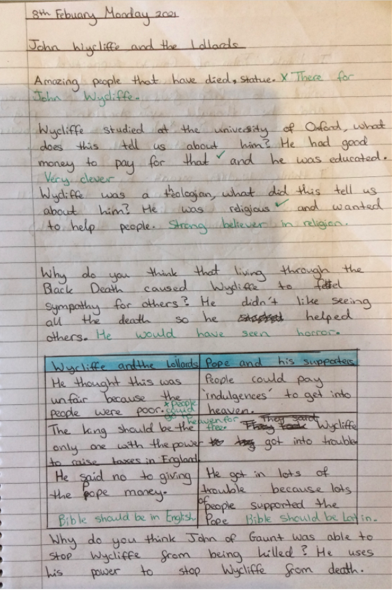 8th Febuary Monday 2021
John Wycliffe and the Lollards
Amazing people that have died, statue. x There for
John Wycliffe.
Wycliffe studied at the university of Oxford, what
does this tell us about him? He had good
money to pay for that ✓ and he was educated.
Very clever
Wycliffe was a theologian, what did this tell us
about him? He was religious ✓ and wanted
to help people. Strong believer in religion.
Why do you think that living through the
Back Death caused Wycliffe to feel
sympathy for others? He didn't like seeing
all the death so he helped
others. He would have seen horror.
Wycliffe and the Lollards | Pope and his supporters
He thought this was | People could pay
unfair because the | "indulgences" to get into
people were poor. x people could go to heaven for free | heaven.
The king should be the | They said Wycliffe
only one with the power | got into trouble
to raise taxes in England |
He said no to giving | He got in lots of
the pope money. | trouble because lots
| of people supported the
Bible should be in English | Pope Bible should be latin.
Why do you think John of Gaunt was able to
stop Wycliffe from being killed? He uses
his power to stop Wycliffe from death.